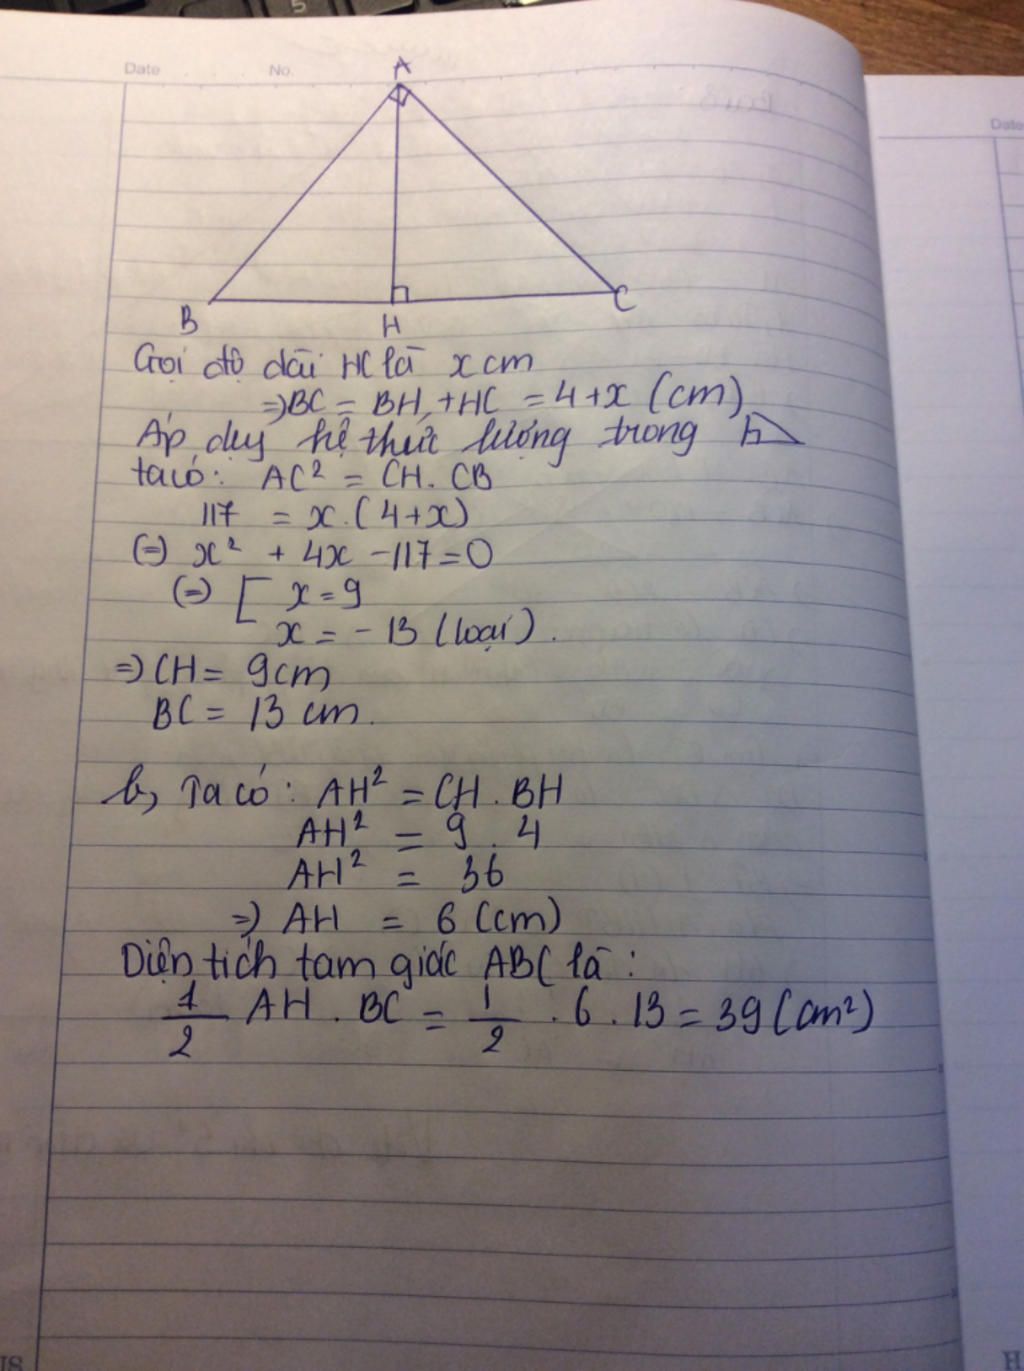 5
Date No.
Date
A
B H C
Gọi độ dài HC là x cm
=> BC = BH + HC = 4+x (cm)
Áp dụg hệ thức lượng trong
ta có: AC² = CH. CB
117 = x.(4+x)
(=) x² + 4x - 117 = 0
(=) [ x = 9
x = - 13 (loại).
=> CH = 9cm
BC = 13 cm.
b, Ta có: AH² = CH. BH
AH² = 9 . 4
AH² = 36
=> AH = 6 (cm)
Diện tích tam giác ABC là:
1/2 AH . BC = 1/2 . 6 . 13 = 39 (cm²)
H